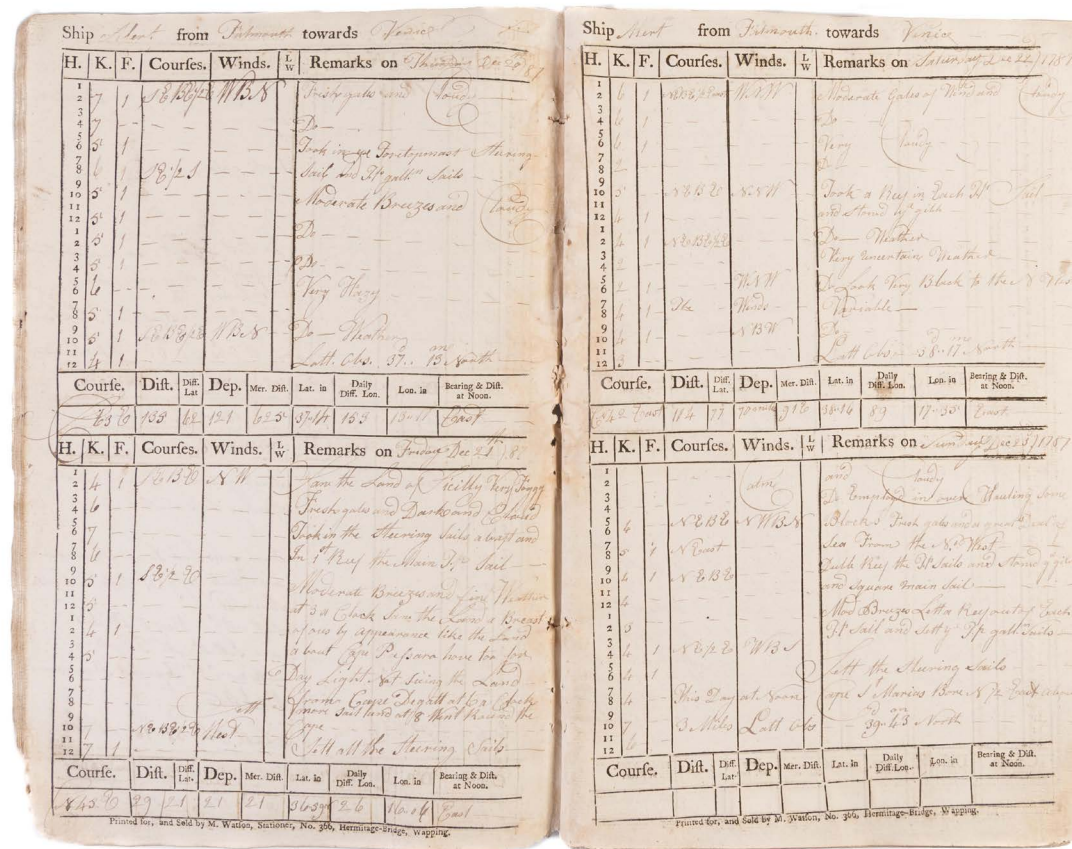 Ship from Falmouth towards Venice
H. K. F. Courses. Winds. L W Remarks on Thursday Dec 20
1
2 7 1 WBN Fresh gales and Cloudy
3
4 7 Do
5
6 5 1 Took in Steering
7
8 6 1 SE 1/2 S Sail and Sails
9
10 5 1 Moderate Breezes and Cloudy
11
12 5 1
1
2 5 1 Do
3
4 5 1 Do
5
6 6 Very Hazy
7
8 5 1
9
10 5 1 WBN Do Weather
11
12 4 1 Latt Obs. 37 13 North
Course. Dist. Diff. Lat Dep. Mer. Dist. Lat. in Daily Diff. Lon. Lon. in Bearing & Dist. at Noon.
135 62 121 625 37-14 153 East
H. K. F. Courses. Winds. L W Remarks on Friday Dec 21
1
2 4 1 SEBE NW Saw the Land of Sicilly Very Foggy
3
4 6 Fresh gales and Dark and Cloudy
5
6 7 Took in the Steering Sails
7
8 6 In 1st Reef the Main Sail
9
10 5 1 SE 1/2 E
11 Moderate Breezes and Fine Weather
12 5 at 3 a Clock Saw the Land a Breast
1
2 4 1 of us by appearance like the Land
3
4 5 about Cape Passara hove too for
5
6 Day Light Not Seeing the Land
7
8 from Cape at 6 a Clock
made Sail and at 8 Went Round the
9
10 7 West Cape
11
12 7 1 Sett all the Steering Sails
Course. Dist. Diff. Lat. Dep. Mer. Dist. Lat. in Daily Diff. Lon. Lon. in Bearing & Dist. at Noon.
29 21 21 21 26 16-06 East
Printed for, and Sold by M. Watson, Stationer, No. 366, Hermitage-Bridge, Wapping.
Ship from Falmouth towards Venice
H. K. F. Courses. Winds. L W Remarks on Saturday Dec 22 1787
1
2 6 1 WNW Moderate Gales of Wind and Cloudy
3
4 6 1 Do
5
6 6 1 Very Cloudy
7
8 2 Do
9
10 5 NEBE NNW Took a Reef in Each Sail
11
12 4 1 and Stowd
1
2 4 1 Do Weather
3
4 2 Very uncertain Weather
5
6 2 1 WNW Do Look Very Black to the
7
8 4 1 The Winds Variable
9
10 4 1 NBW Do
11
12 3 Latt Obs 38-17 North
Course. Dist. Diff. Lat. Dep. Mer. Dist. Lat. in Daily Diff. Lon. Lon. in Bearing & Dist. at Noon.
East 114 77 38-16 89 17-35 East
H. K. F. Courses. Winds. L W Remarks on Sunday Dec 23 1787
1 and Cloudy
2 Calm
3
4 Do Employd in over Hauling Some
5
6 6 NEBE NWBN Blocks Fresh gales and a great
7
8 5 1 N East Sea From the No West
9 Dubb Reef the Sails and Stowd
10 4 1 NEBE
11 and Square main Sail
12 4 Mod Breezes Lett a Reef out of Each
1
2 5 Sail and Sett Sails
3
4 4 1 NE 1/2 E WBS
5
6 6 1 Sett the Steering Sails
7
8 4 This Day at Noon Cape St Marias Bore N 1/2 East
9
10 7 3 Miles Latt Obs 39-43 North
11
12 6
Course. Dist. Diff. Lat. Dep. Mer. Dist. Lat. in Daily Diff. Lon. Lon. in Bearing & Dist. at Noon.
Printed for, and Sold by M. Watson, Stationer, No. 366, Hermitage-Bridge, Wapping.